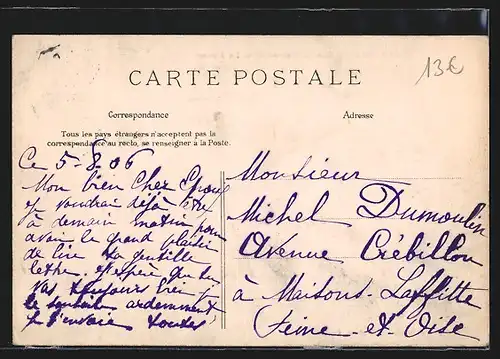 CARTE POSTALE
13€
Correspondance
Adresse
Tous les pays étrangers n'acceptent pas la
correspondance au recto, se renseigner à la Poste.
Ce 5-8-06
Mon bien Cher
je voudrai déjà être
à demain matin pour
avoir le grand plaisir
de lire ta gentille
lettre. espère que tu
vas toujours bien je
le souhait ardemment
je t'envoie toutes
Monsieur
Michel Dumoulin
Avenue Crébillon
à Maisons-Laffitte
Seine-et-Oise